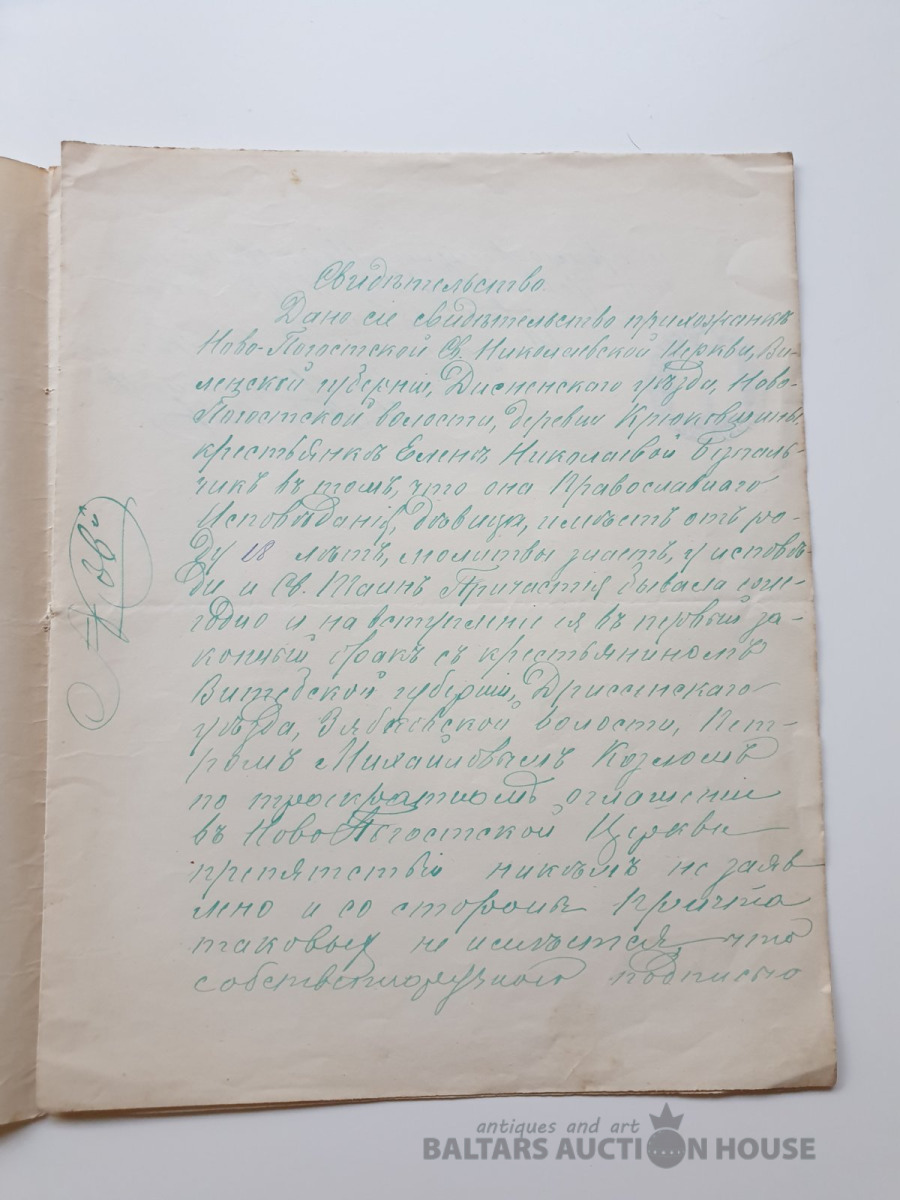 Свидѣтельство
Дано сіе свидѣтельство прихожанкѣ
Ново-Погостской Св. Николаевской Церкви, Ви-
ленской губерніи, Дисненскаго уѣзда, Ново-
Погостской волости, деревни Крюковщины,
крестьянкѣ Еленѣ Николаевой
чикъ въ томъ, что она Православнаго
Исповѣданія, дѣвица, имѣетъ отъ ро-
ду 18 лѣтъ, молитвы знаетъ, у исповѣ-
ди и Св. Таинъ Причастія бывала еже-
годно и на вступленіе ея въ первый за-
конный бракъ съ крестьяниномъ
Витебской губерніи, Дриссенскаго
уѣзда, Зябковской волости, Пет-
ромъ Михайловымъ Козломъ
по троекратномъ оглашеніи
въ Ново Погостской Церкви
препятствій никѣмъ не заяв
лено и со стороны Причта
таковых не имѣется, что
собственноручною подписью
antiques and art
BALTARS AUCTION HOUSE